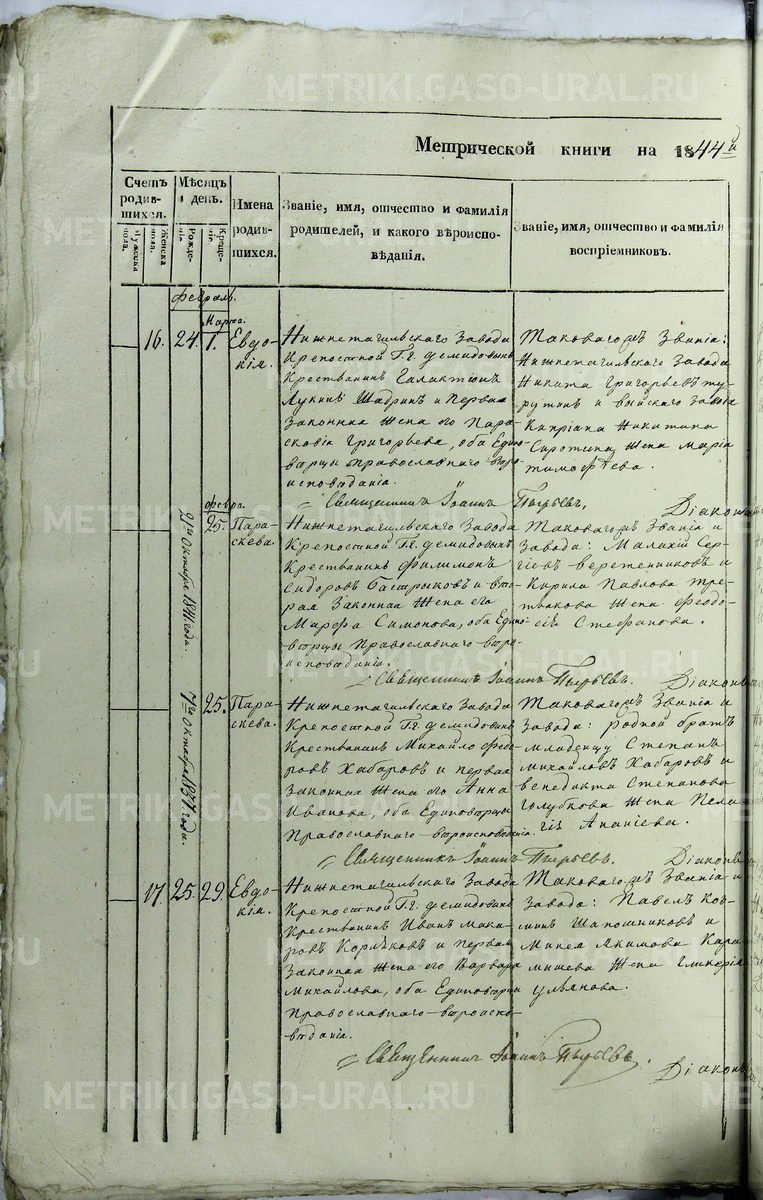 METRIKI.GASO-URAL.RU
Метрической книги на 1844й
Счетъ родив-шихся.
Мужеска пола.
Женска пола.
Мѣсяцъ и день.
Рожде-нія.
Креще-нія.
Имена родив-шихся.
Званіе, имя, отчество и фамилія
родителей, и какого вѣроиспо-
вѣданія.
Званіе, имя, отчество и фамилія
воспріемниковъ.
февраль.
Марта.
16. 24. 1. Евдо-
кія.
Нижнетагильскаго Завода
Крепостной Г.г. Демидовыхъ
Крестьянинъ Галактіонъ
Лукинъ Шадринъ и Первая
Законная Жена его Пара-
сковія Григорьева, оба Едино-
вѣрцы Православнаго вѣро-
исповѣданія.
Таковагожъ Званія:
Нижнетагильскаго Завода
Никита Григорьевъ Ту-
рутинъ и выйскаго Завода
Кипріана Никитина
Сиротина Жена Марія
Тимофѣева.
Священникъ Іоаннъ Пырьевъ. Діаконъ
февра.
21го Октября 1841. года.
25. Пара-
скева.
Нижнетагильскаго Завода
Крепостной Г.г. Демидовыхъ
Крестьянинъ Филимонъ
Сидоровъ Бастрыковъ и вто-
рая Законная Жена его
Марфа Симонова, оба Едино-
вѣрцы Православнаго вѣро-
исповѣданія.
Таковагожъ Званія и
Завода: Малахій Сер-
гіевъ Веретенниковъ и
Кирила Павлова Тре-
тьякова Жена Феодо-
сія Стефанова.
Священникъ Іоаннъ Пырьевъ. Діаконъ
7го Октября 1837. года.
25. Пара-
скева.
Нижнетагильскаго Завода
Крепостной Г.г. Демидовыхъ
Крестьянинъ Михайло Фео-
ровъ Хабаровъ и первая
Законная Жена его Анна
Иванова, оба Единовѣрцы
Православнаго вѣроисповеданія.
Таковагожъ Званія и
Завода: родной братъ
младенцу Степанъ
Михайловъ Хабаровъ и
Венедикта Степанова
Голубкова Жена Пела-
гія Ананіева.
Священникъ Іоаннъ Пырьевъ. Діаконъ
17. 25. 29. Евдо-
кія.
Нижнетагильскаго Завода
Крепостной Г.г. Демидовыхъ
Крестьянинъ Иванъ Мака-
ровъ и первая
Законная Жена его Варвара
Михайлова, оба Единовѣрцы
Православнаго вѣроиспо-
вѣданія.
Таковагожъ Званія и
Завода: Павелъ Коз-
минъ Шапошниковъ и
Минея Якимова Кара-
мышева Жена Гликерія
Ульянова.
Священникъ Іоаннъ Пырьевъ. Діаконъ